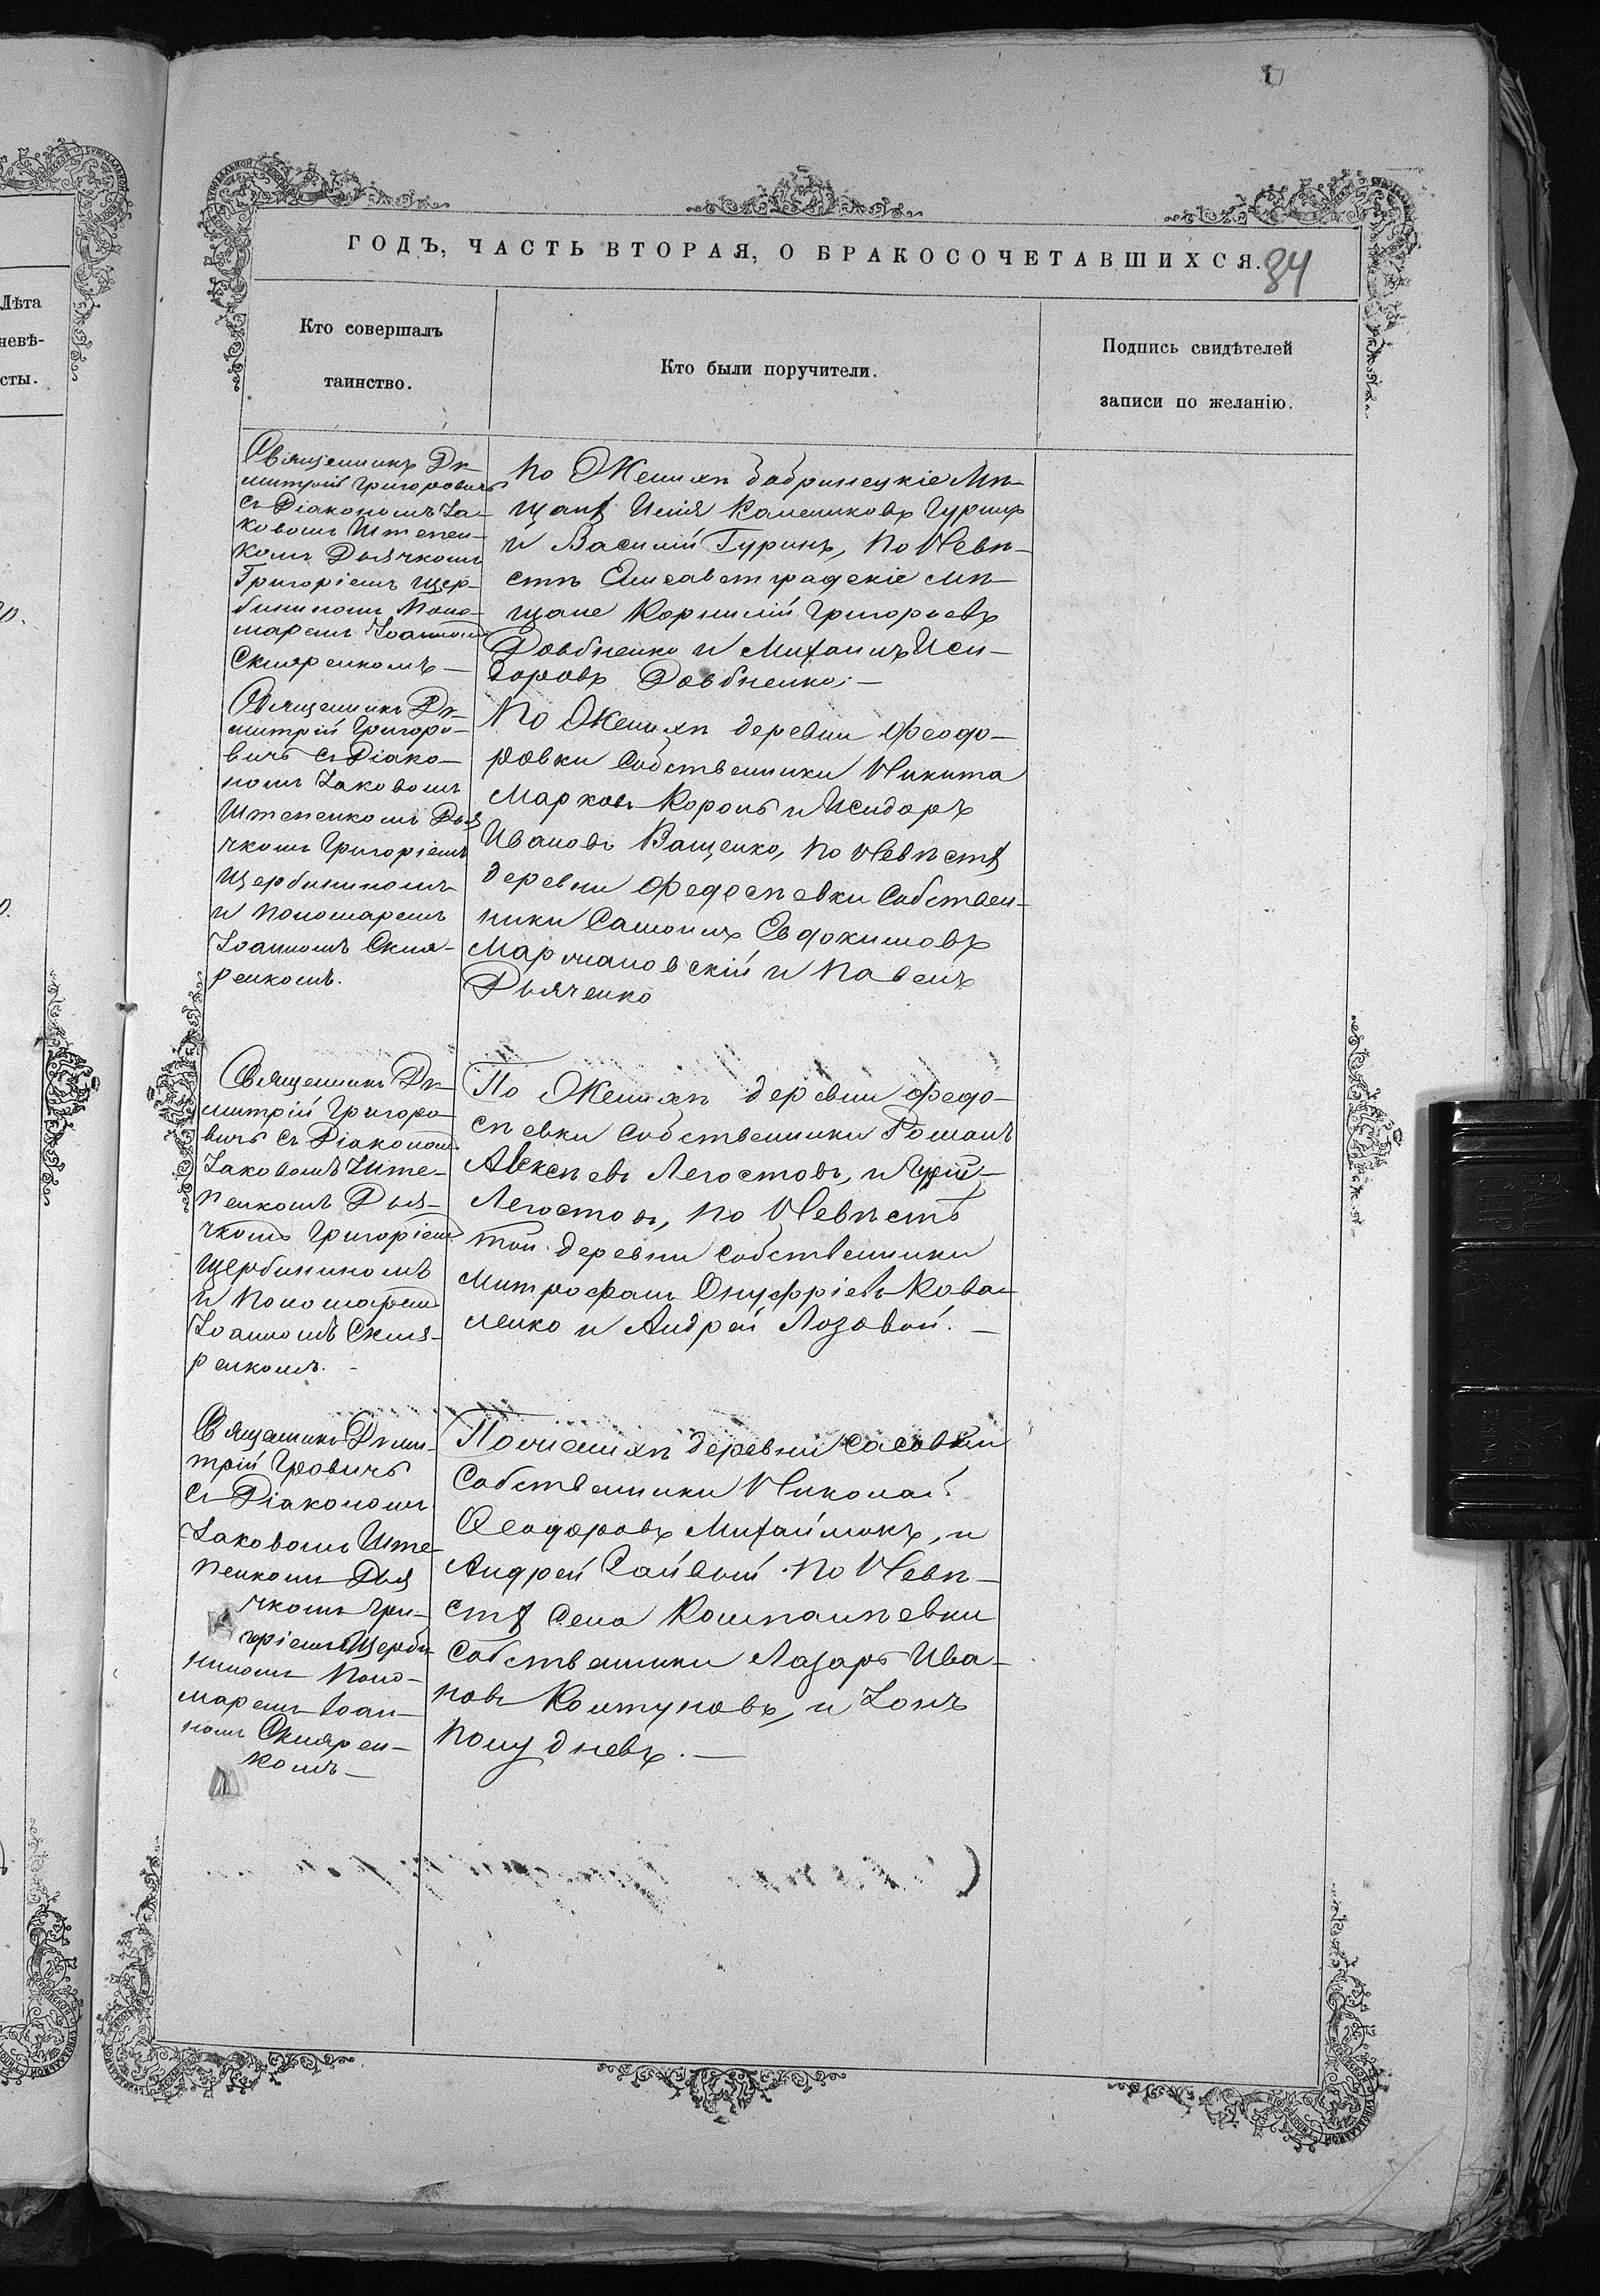 Лѣта
невѣ-
сты.
ГОДЪ, ЧАСТЬ ВТОРАЯ, О БРАКОСОЧЕТАВШИХСЯ.
84
Кто совершалъ
таинство.
Кто были поручители.
Подпись свидѣтелей
записи по желанію.
Священникъ Ди-
митрій Григоровичъ
съ Діакономъ Іа-
ковомъ Штепен-
комъ Дьячкомъ
Григоріемъ Щер-
бининомъ Поно-
маремъ Іоанномъ
Скляренкомъ —
По Женихѣ бобринецкіе Мѣ-
щанѣ Илія Гуринъ
и Василій Гуринъ, по Невѣ-
стѣ Елисаветградскіе мѣ-
щане Корнилій Григорьевъ
Довбненко и Михаилъ Иси-
доровъ Довбненко. —
Священникъ Ди-
митрій Григоро-
вичъ съ Діако-
номъ Іаковомъ
Штепенкомъ Дья
чкомъ Григоріемъ
Щербининомъ
и пономаремъ
Іоанномъ Скля-
ренкомъ.
По Женихѣ деревни Феодо-
ровки Собственники Никита
Марковъ Король и Исидоръ
Ивановъ Ващенко, по Невѣстѣ
деревни Федосѣевки Собствен-
ники Самоилъ Евдокимовъ
Марчановскій и Павелъ
Дьяченко
Священникъ Ди-
митрій Григоро-
вичъ съ Діакономъ
Іаковомъ Ште-
пенкомъ Дья-
чкомъ Григоріемъ
Щербининомъ
и Пономаремъ
Іоанномъ Скля-
ренкомъ. -
По Женихѣ деревни Федо-
сѣевки Собственники Романъ
Алексѣевъ Легостовъ, и
Легостовъ, по Невѣстѣ
той деревни собственники
Митрофанъ Онуфріевъ Кова-
ленко и Андрей Лозовой. —
Священникъ Дими-
трій Гровичъ
съ Діакономъ
Іаковомъ Ште-
пенкомъ Дья
чкомъ Гри-
горіемъ Щерби
нином Поно-
маремъ Іоан-
номъ Скларен-
комъ —
По женихѣ деревни Сасовки
Собственники Николай
Феодоровъ Михайлюкъ, и
Андрей Сайвый по Невѣ-
стѣ Села Компанѣевки
Собственники Лазарь Ива-
новъ Колтуновъ, и Іонъ
Полудневъ. —